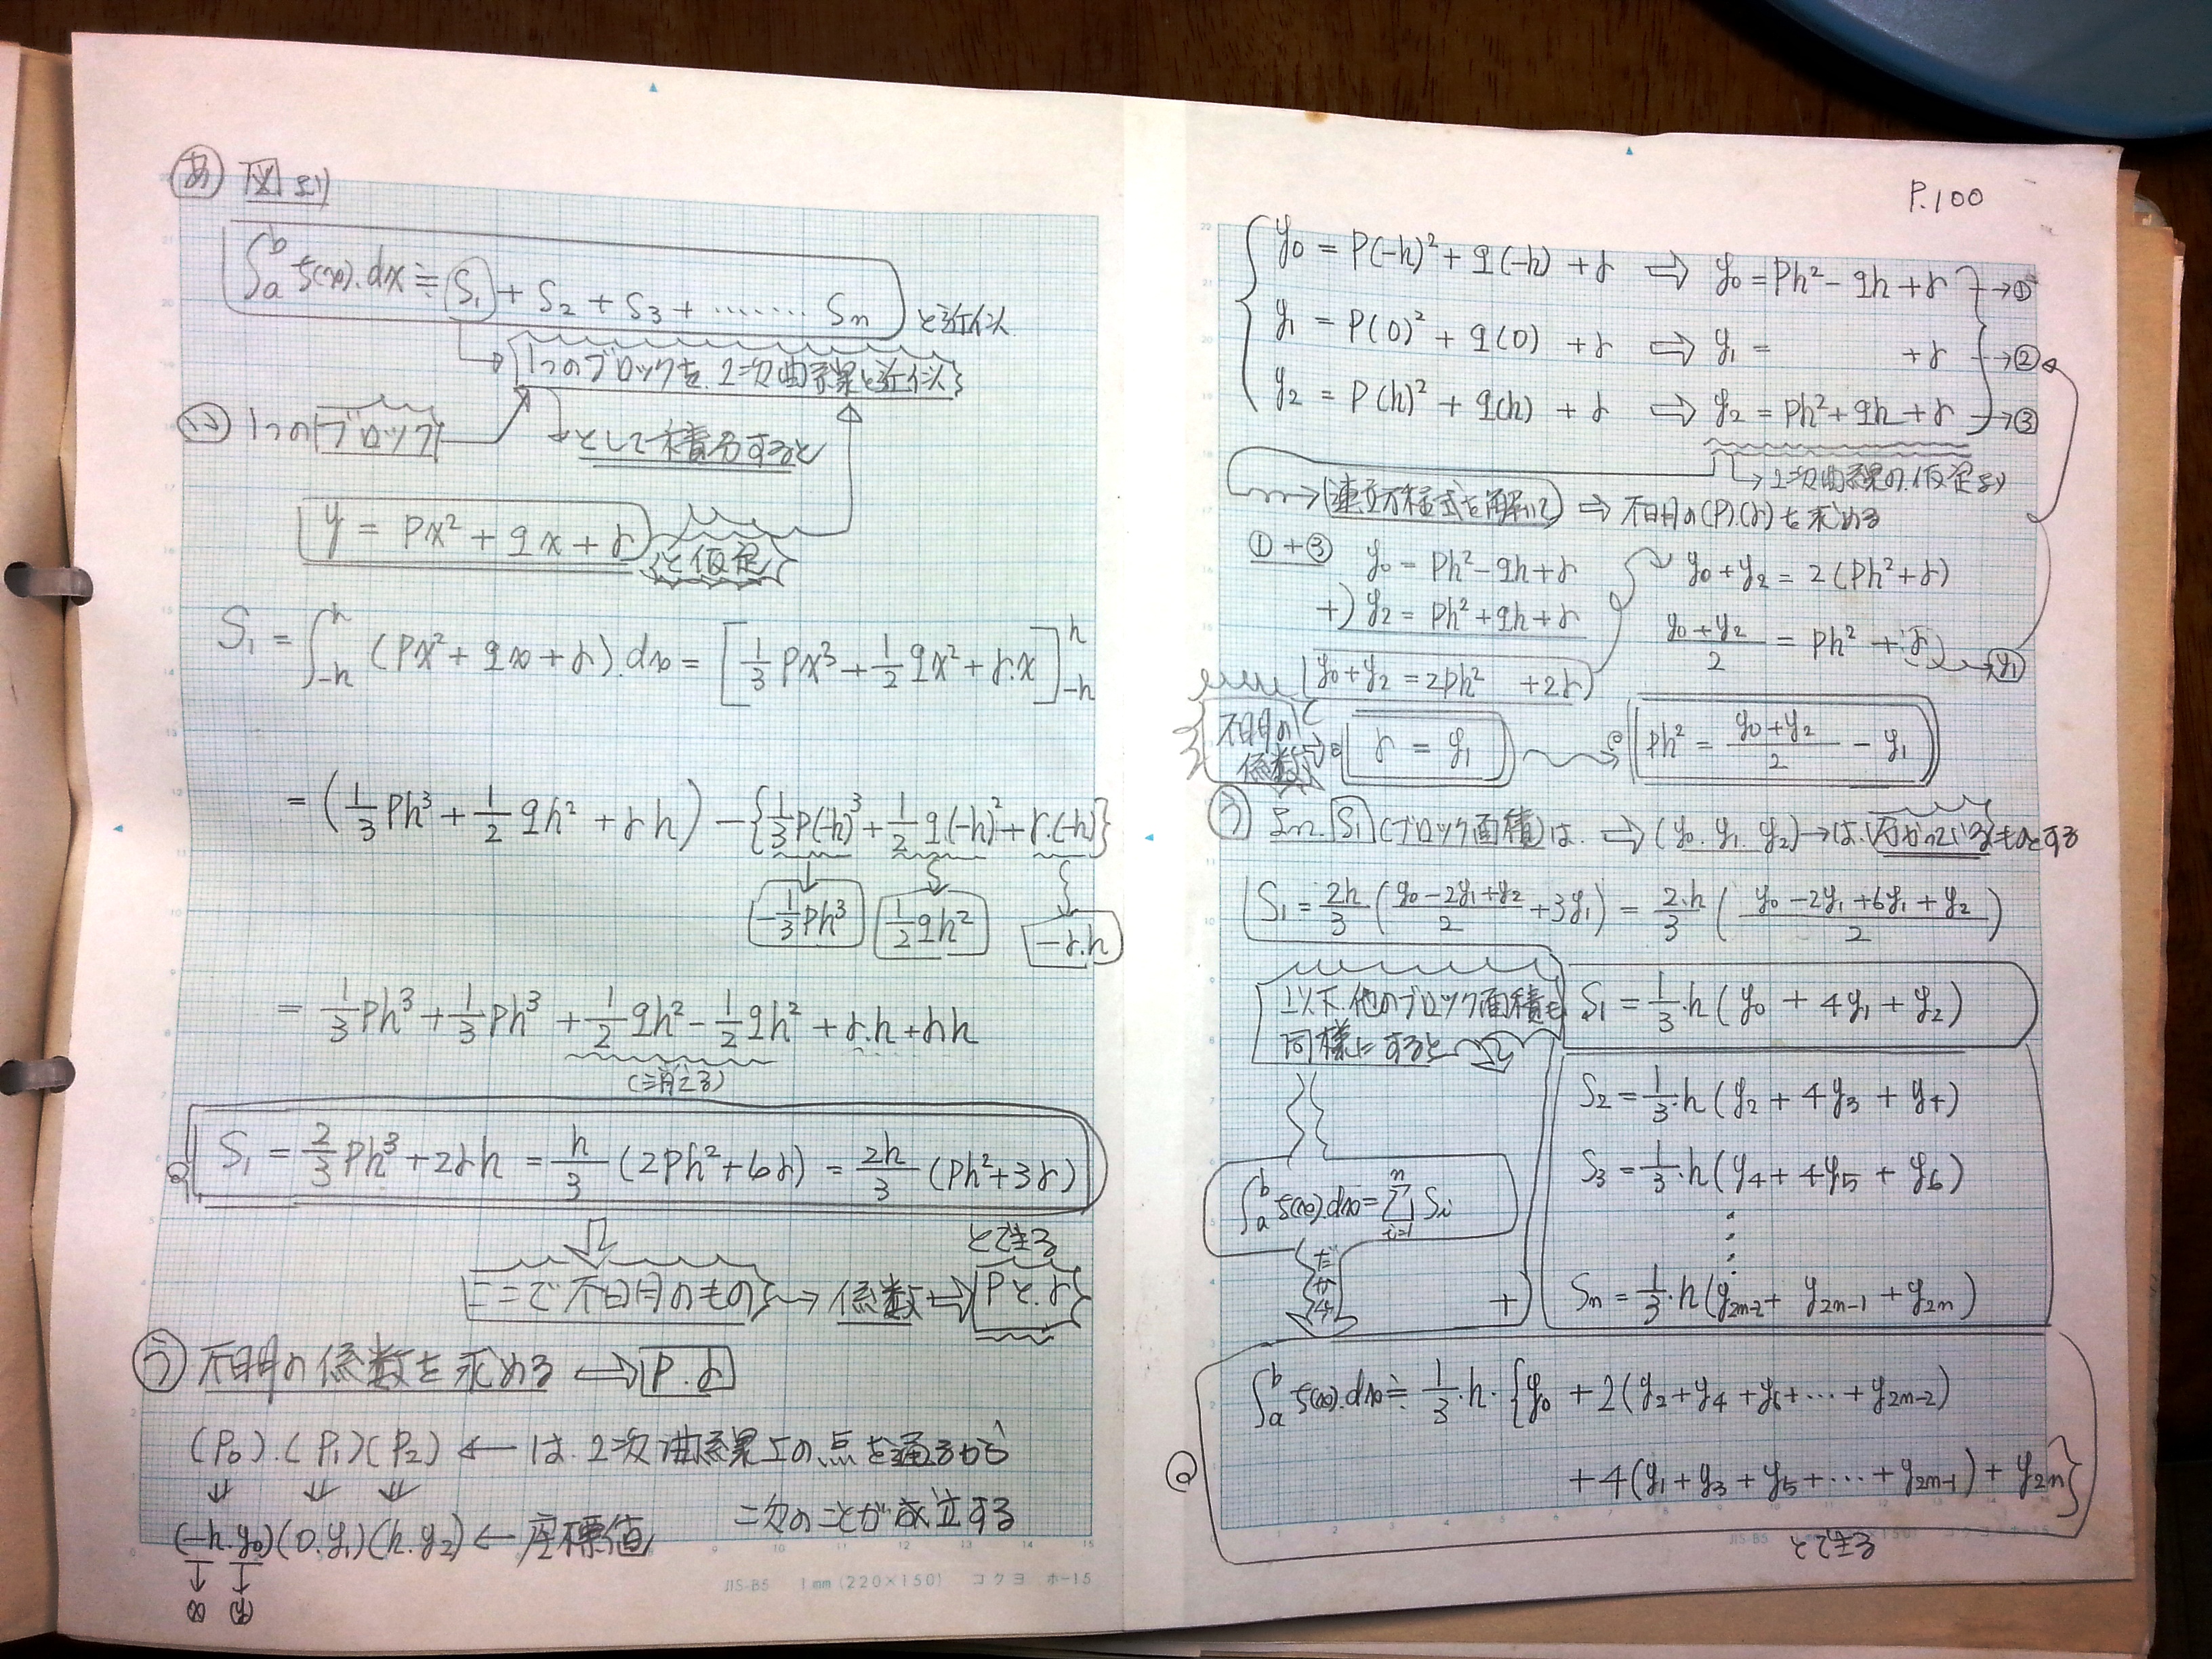 あ 図より
∫_a^b f(x).dx ≒ S₁ + S₂ + S₃ + ....... Sn と近似
1つのブロックを.2次曲線と近似
い 1つのブロック
として積分すると
y = px² + qx + r と仮定
S₁ = ∫_{-h}^{h} (px² + qx + r).dx = [1/3 px³ + 1/2 qx² + r.x]_{-h}^{h}
= (1/3 ph³ + 1/2 qh² + rh) - {1/3 p(-h)³ + 1/2 q(-h)² + r.(-h)}
-1/3 ph³ 1/2 qh² -r.h
= 1/3 ph³ + 1/3 ph³ + 1/2 qh² - 1/2 qh² + r.h + rh
(消える)
S₁ = 2/3 ph³ + 2rh = h/3 (2ph² + 6r) = 2h/3 (ph² + 3r)
とできる
ここで不明のもの → 係数 ⇒ pと.r
う 不明の係数を求める ⇒ p.r
(P₀).(P₁)(P₂) ← は.2次曲線上の点を通るから
二次のことが成立する
(-h.y₀)(0.y₁)(h.y₂) ← 座標値
(x) (y)
JIS-B5 1mm (220×150) コクヨ ホ-15
P.100
y₀ = p(-h)² + q(-h) + r ⇒ y₀ = ph² - qh + r → ①
y₁ = p(0)² + q(0) + r ⇒ y₁ = + r → ②
y₂ = p(h)² + q(h) + r ⇒ y₂ = ph² + qh + r → ③
2次曲線の.仮定より
連立方程式を解いて ⇒ 不明の(p).(r)を求める
①+③ y₀ = ph² - qh + r
+) y₂ = ph² + qh + r
y₀ + y₂ = 2ph² + 2r
y₀ + y₂ = 2(ph² + r)
(y₀ + y₂)/2 = ph² + r → y₁
不明の係数 r = y₁
ph² = (y₀ + y₂)/2 - y₁
う S₁ (ブロック面積)は. ⇒ (y₀. y₁. y₂) → は.わかっているものとする
S₁ = 2h/3 ((y₀ - 2y₁ + y₂)/2 + 3y₁) = 2.h/3 ((y₀ - 2y₁ + 6y₁ + y₂)/2)
以下.他のブロック面積も
同様にすると
S₁ = 1/3.h (y₀ + 4y₁ + y₂)
S₂ = 1/3.h (y₂ + 4y₃ + y₄)
S₃ = 1/3.h (y₄ + 4y₅ + y₆)
∫_a^b f(x).dx = Σ_{i=1}^{n} Si
だから
+
Sn = 1/3.h (y_{2n-2} + y_{2n-1} + y_{2n})
∫_a^b f(x).dx ≒ 1/3.h.{y₀ + 2(y₂ + y₄ + y₆ + ... + y_{2n-2})
+ 4(y₁ + y₃ + y₅ + ... + y_{2n-1}) + y_{2n}}
とできる